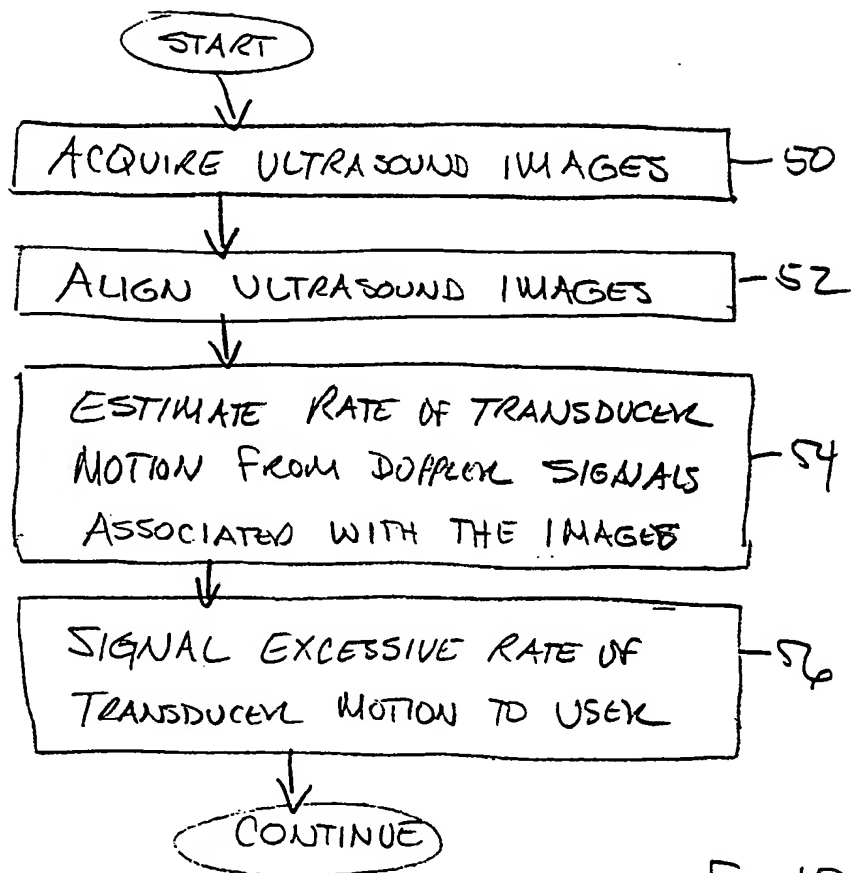 START
ACQUIRE ULTRASOUND IMAGES
50
ALIGN ULTRASOUND IMAGES
52
ESTIMATE RATE OF TRANSDUCER
MOTION FROM DOPPLER SIGNALS
ASSOCIATED WITH THE IMAGES
54
SIGNAL EXCESSIVE RATE OF
TRANSDUCER MOTION TO USER
56
CONTINUE